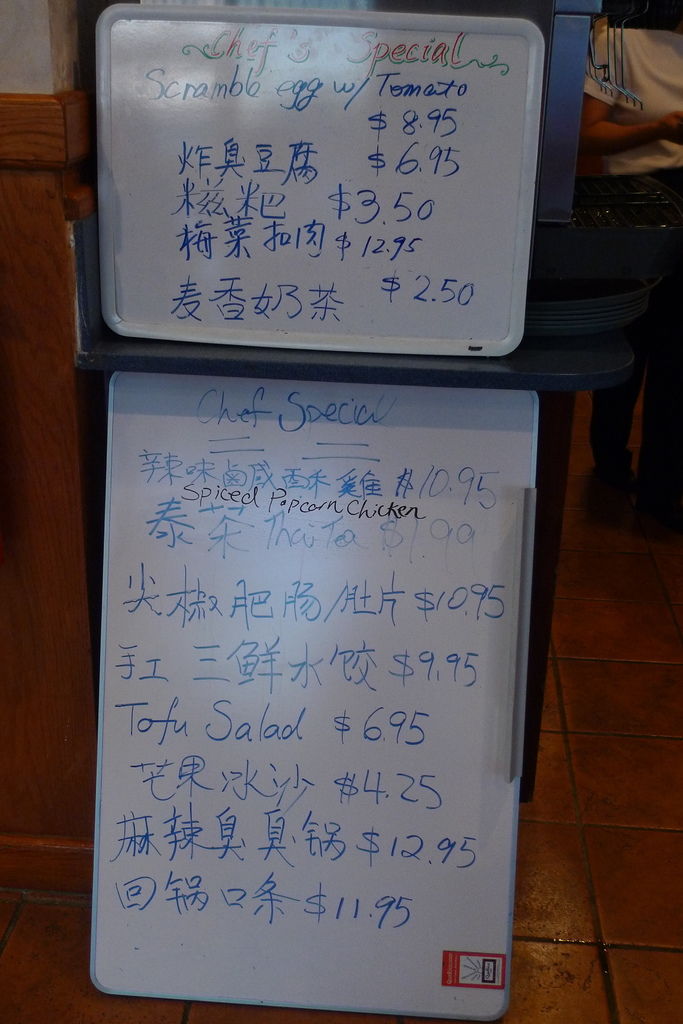 Chef's Special
Scramble egg w/ Tomato
$ 8.95
炸臭豆腐 $ 6.95
糍粑 $3.50
梅菜扣肉 $ 12.95
麦香奶茶 $ 2.50
Chef Special
辣味鹵咸酥雞 $10.95
Spiced Popcorn Chicken
泰茶 Thai Tea $1.99
尖椒肥肠/肚片 $10.95
手工 三鲜水饺 $9.95
Tofu Salad $ 6.95
芒果冰沙 $4.25
麻辣臭臭锅 $12.95
回锅口条 $11.95